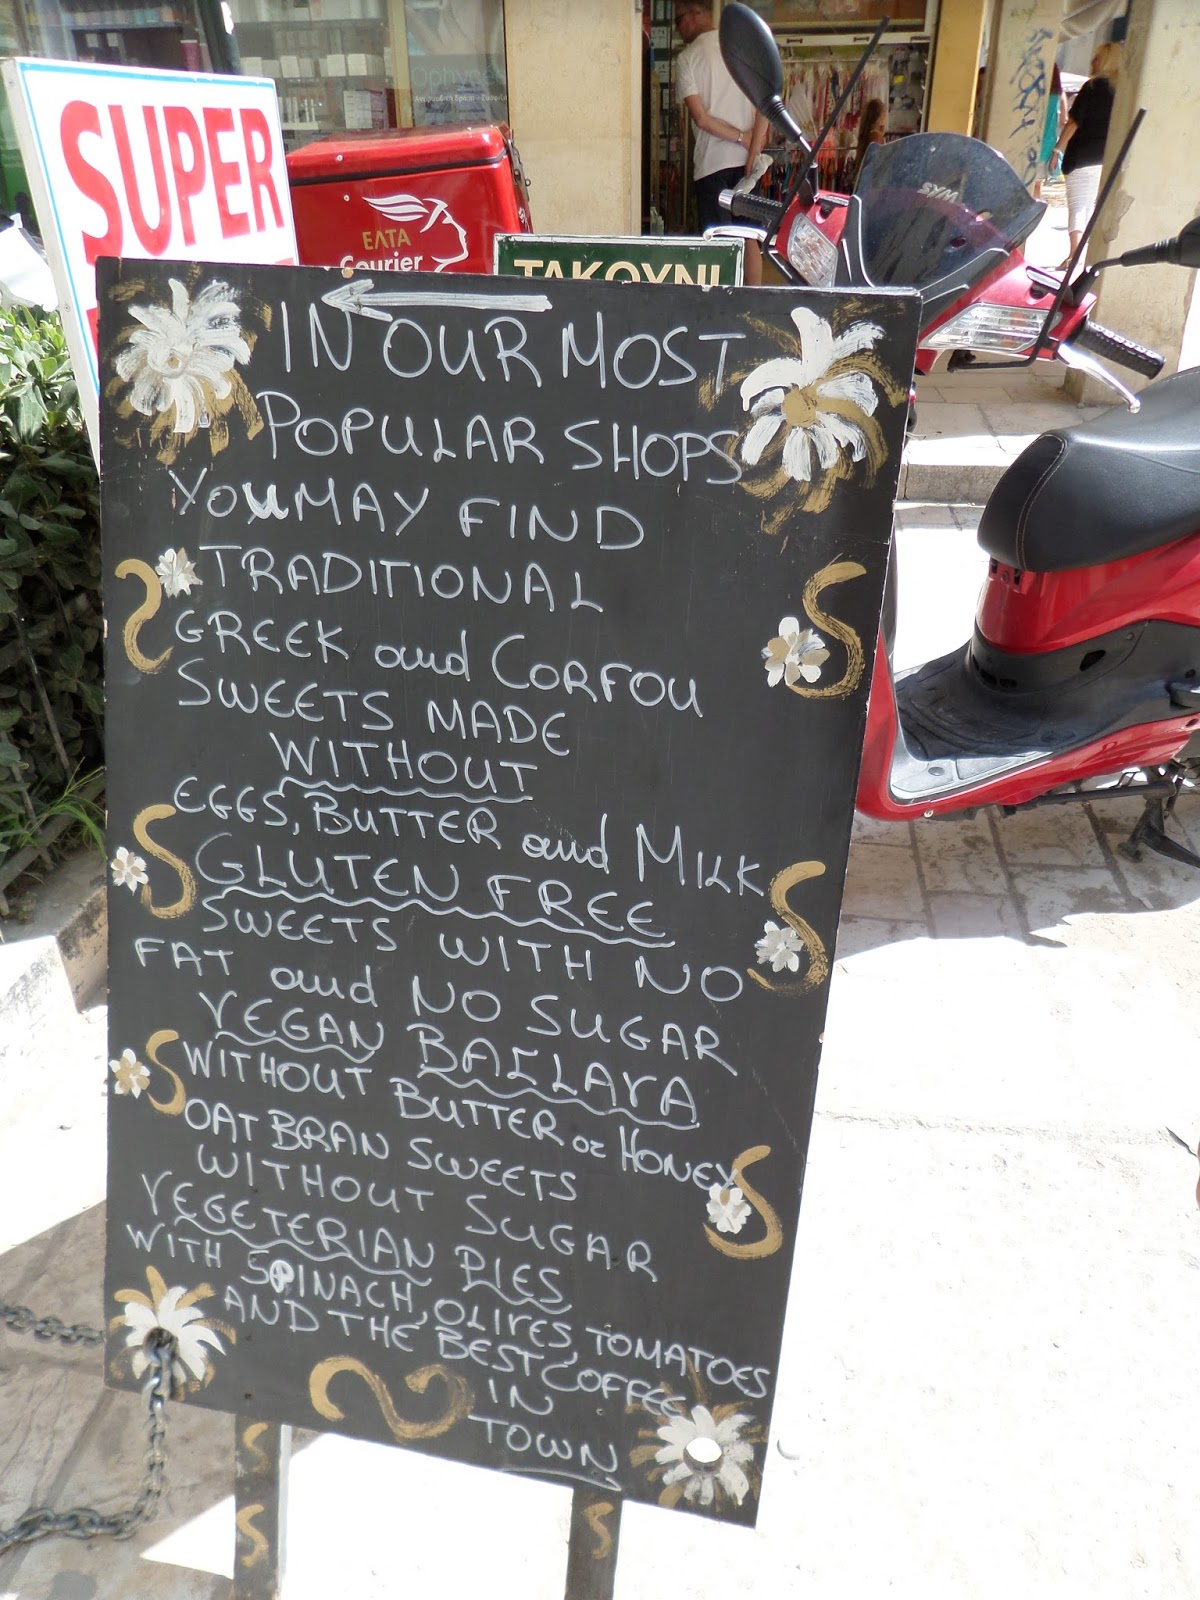 Ophycee
SUPER
ΕΛΤΑ
Courier
ΤΑΚΟΥΝΙ
SYM
IN OUR MOST
POPULAR SHOPS
YOU MAY FIND
TRADITIONAL
GREEK and CORFOU
SWEETS MADE
WITHOUT
EGGS, BUTTER and MILK
GLUTEN FREE
SWEETS WITH NO
FAT and NO SUGAR
VEGAN BACLAVA
WITHOUT BUTTER or HONEY
OAT BRAN SWEETS
WITHOUT SUGAR
VEGETERIAN PIES
WITH SPINACH, OLIVES, TOMATOES
AND THE BEST COFFEE
IN
TOWN